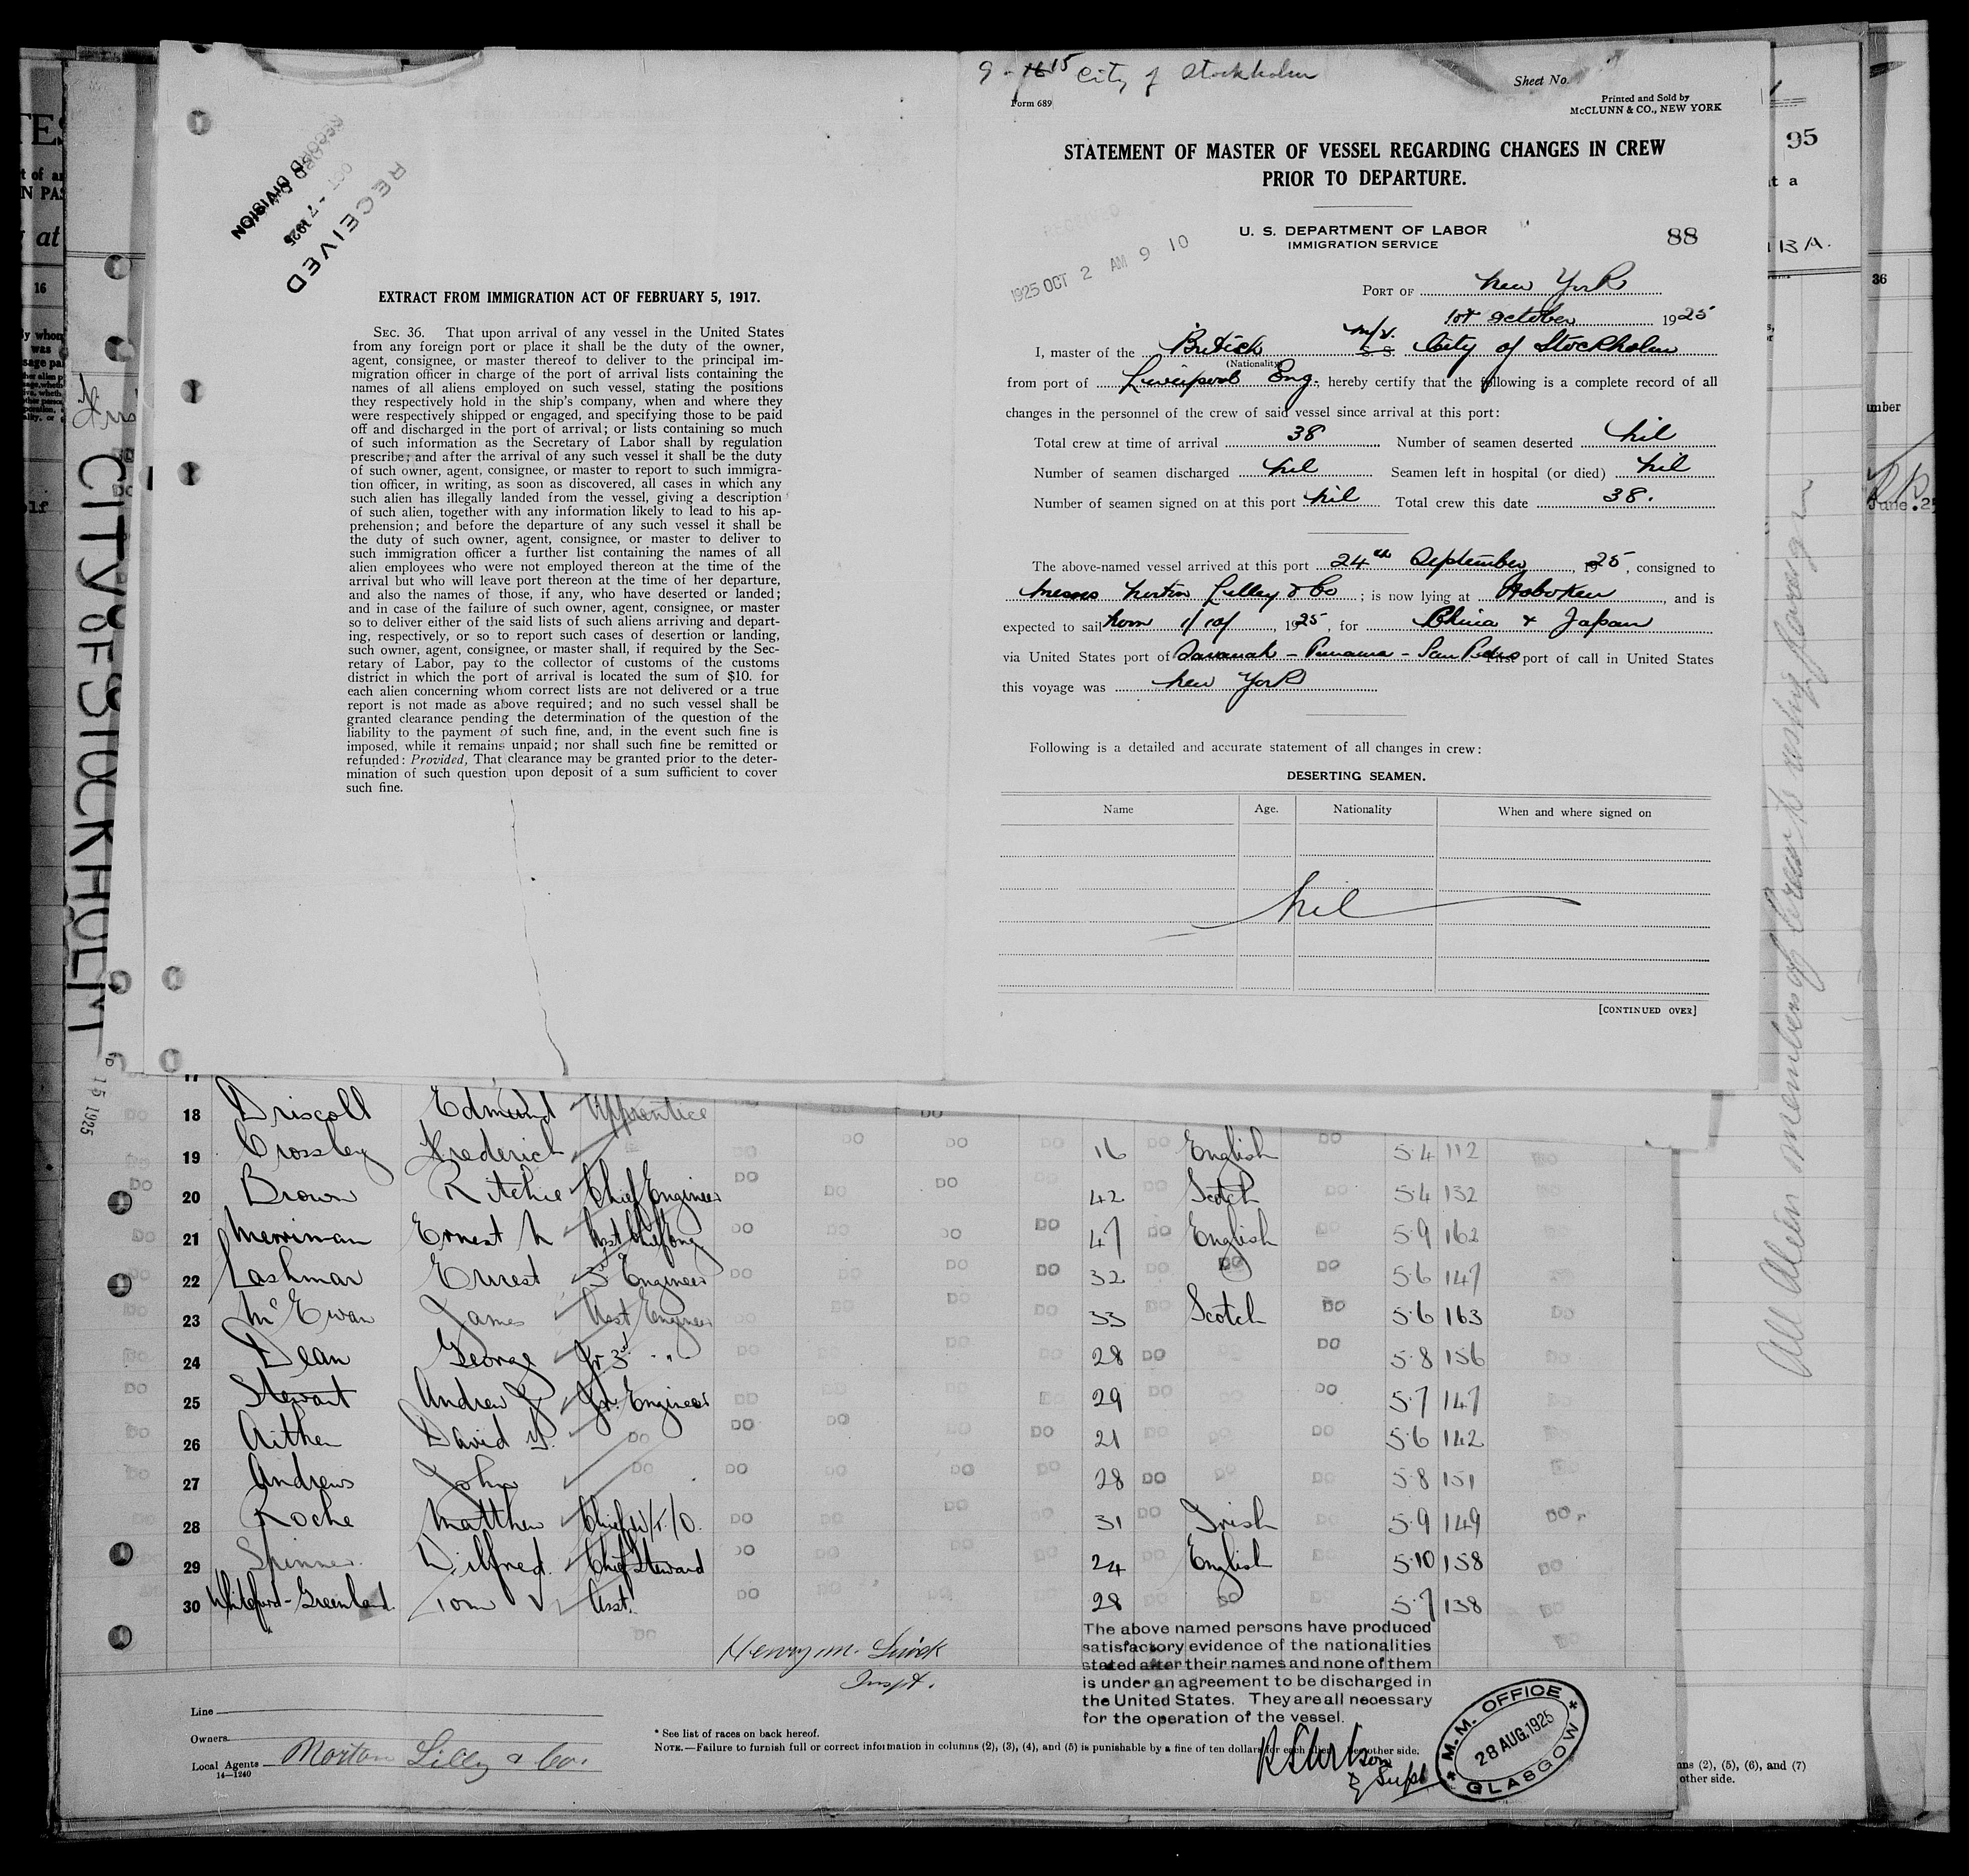 RECORD DIVISION
OCT -7 1925
RECEIVED
EXTRACT FROM IMMIGRATION ACT OF FEBRUARY 5, 1917.
SEC. 36. That upon arrival of any vessel in the United States
from any foreign port or place it shall be the duty of the owner,
agent, consignee, or master thereof to deliver to the principal im-
migration officer in charge of the port of arrival lists containing the
names of all aliens employed on such vessel, stating the positions
they respectively hold in the ship's company, when and where they
were respectively shipped or engaged, and specifying those to be paid
off and discharged in the port of arrival; or lists containing so much
of such information as the Secretary of Labor shall by regulation
prescribe; and after the arrival of any such vessel it shall be the duty
of such owner, agent, consignee, or master to report to such immigra-
tion officer, in writing, as soon as discovered, all cases in which any
such alien has illegally landed from the vessel, giving a description
of such alien, together with any information likely to lead to his ap-
prehension; and before the departure of any such vessel it shall be
the duty of such owner, agent, consignee, or master to deliver to
such immigration officer a further list containing the names of all
alien employees who were not employed thereon at the time of the
arrival but who will leave port thereon at the time of her departure,
and also the names of those, if any, who have deserted or landed;
and in case of the failure of such owner, agent, consignee, or master
so to deliver either of the said lists of such aliens arriving and depart-
ing, respectively, or so to report such cases of desertion or landing,
such owner, agent, consignee, or master shall, if required by the Sec-
retary of Labor, pay to the collector of customs of the customs
district in which the port of arrival is located the sum of $10. for
each alien concerning whom correct lists are not delivered or a true
report is not made as above required; and no such vessel shall be
granted clearance pending the determination of the question of the
liability to the payment of such fine, and, in the event such fine is
imposed, while it remains unpaid; nor shall such fine be remitted or
refunded: Provided, That clearance may be granted prior to the deter-
mination of such question upon deposit of a sum sufficient to cover
such fine.
9 - 15 City of Stockholm
Sheet No.
Form 689
Printed and Sold by
McCLUNN & CO., NEW YORK
STATEMENT OF MASTER OF VESSEL REGARDING CHANGES IN CREW
PRIOR TO DEPARTURE.
U. S. DEPARTMENT OF LABOR
IMMIGRATION SERVICE
88
1925 OCT 2 AM 9 10
PORT OF New York
1st October 1925
I, master of the British M/V. S S City of Stockholm
(Nationality)
from port of Liverpool Eng., hereby certify that the following is a complete record of all
changes in the personnel of the crew of said vessel since arrival at this port:
Total crew at time of arrival 38 Number of seamen deserted nil
Number of seamen discharged nil Seamen left in hospital (or died) nil
Number of seamen signed on at this port nil Total crew this date 38.
The above-named vessel arrived at this port 24th September, 1925, consigned to
Messrs Norton Lilley & Co; is now lying at Hoboken, and is
expected to sail 1/10/, 1925, for China & Japan
via United States port of Savanah - Panama - San Pedro First port of call in United States
this voyage was New York
Following is a detailed and accurate statement of all changes in crew:
DESERTING SEAMEN.
Name Age. Nationality When and where signed on
nil
[CONTINUED OVER]
CITY OF STOCKHOLM
15 1925
95
36
mber
June.25
All Alien members of Crew
17
18 Driscoll Edmund Apprentice DO
19 Crossley Frederich DO DO DO DO 16 DO English DO 5·4 112
20 Brown Ritchie Chief Engineer DO DO DO DO 42 DO Scotch DO 5·4 132
21 Merriman Ernest N Asst Chief Eng DO DO DO DO 47 DO English DO 5·9 162
22 Lashmar Ernest 3rd Engineer DO DO DO DO 32 DO DO DO 5·6 147
23 McEwan James Asst Engineer DO DO DO DO 33 DO Scotch DO 5·6 163 DO
24 Dean George Jr 3rd " DO DO DO DO 28 DO DO DO 5·8 156
25 Stewart Andrew J Jr. Engineer DO DO DO DO 29 DO DO 5·7 147
26 Aitken David Y. DO DO DO DO DO 21 DO DO DO 5·6 142
27 Andrews John DO DO DO DO DO 28 DO DO DO 5·8 151
28 Roche Matthew Chief W/T/O. DO DO DO DO 31 DO Irish DO 5·9 149 DO
29 Spinner Wilfred Chief Steward DO DO DO DO 24 DO English DO 5·10 158 DO
30 Whiteford-Greenland Tom V Asst. DO DO DO DO 28 DO DO DO 5·7 138 DO
DO
Henry M.
Inspt.
The above named persons have produced
satisfactory evidence of the nationalities
stated after their names and none of them
is under an agreement to be discharged in
the United States. They are all necessary
for the operation of the vessel.
Supt
M.M. OFFICE
28 AUG.1925
GLASGOW
Line
Owners
Local Agents Norton Lilly & Co.
14—1240
* See list of races on back hereof.
NOTE.—Failure to furnish full or correct information in columns (2), (3), (4), and (5) is punishable by a fine of ten dollars for each alien. See other side.
ns (2), (5), (6), and (7)
other side.